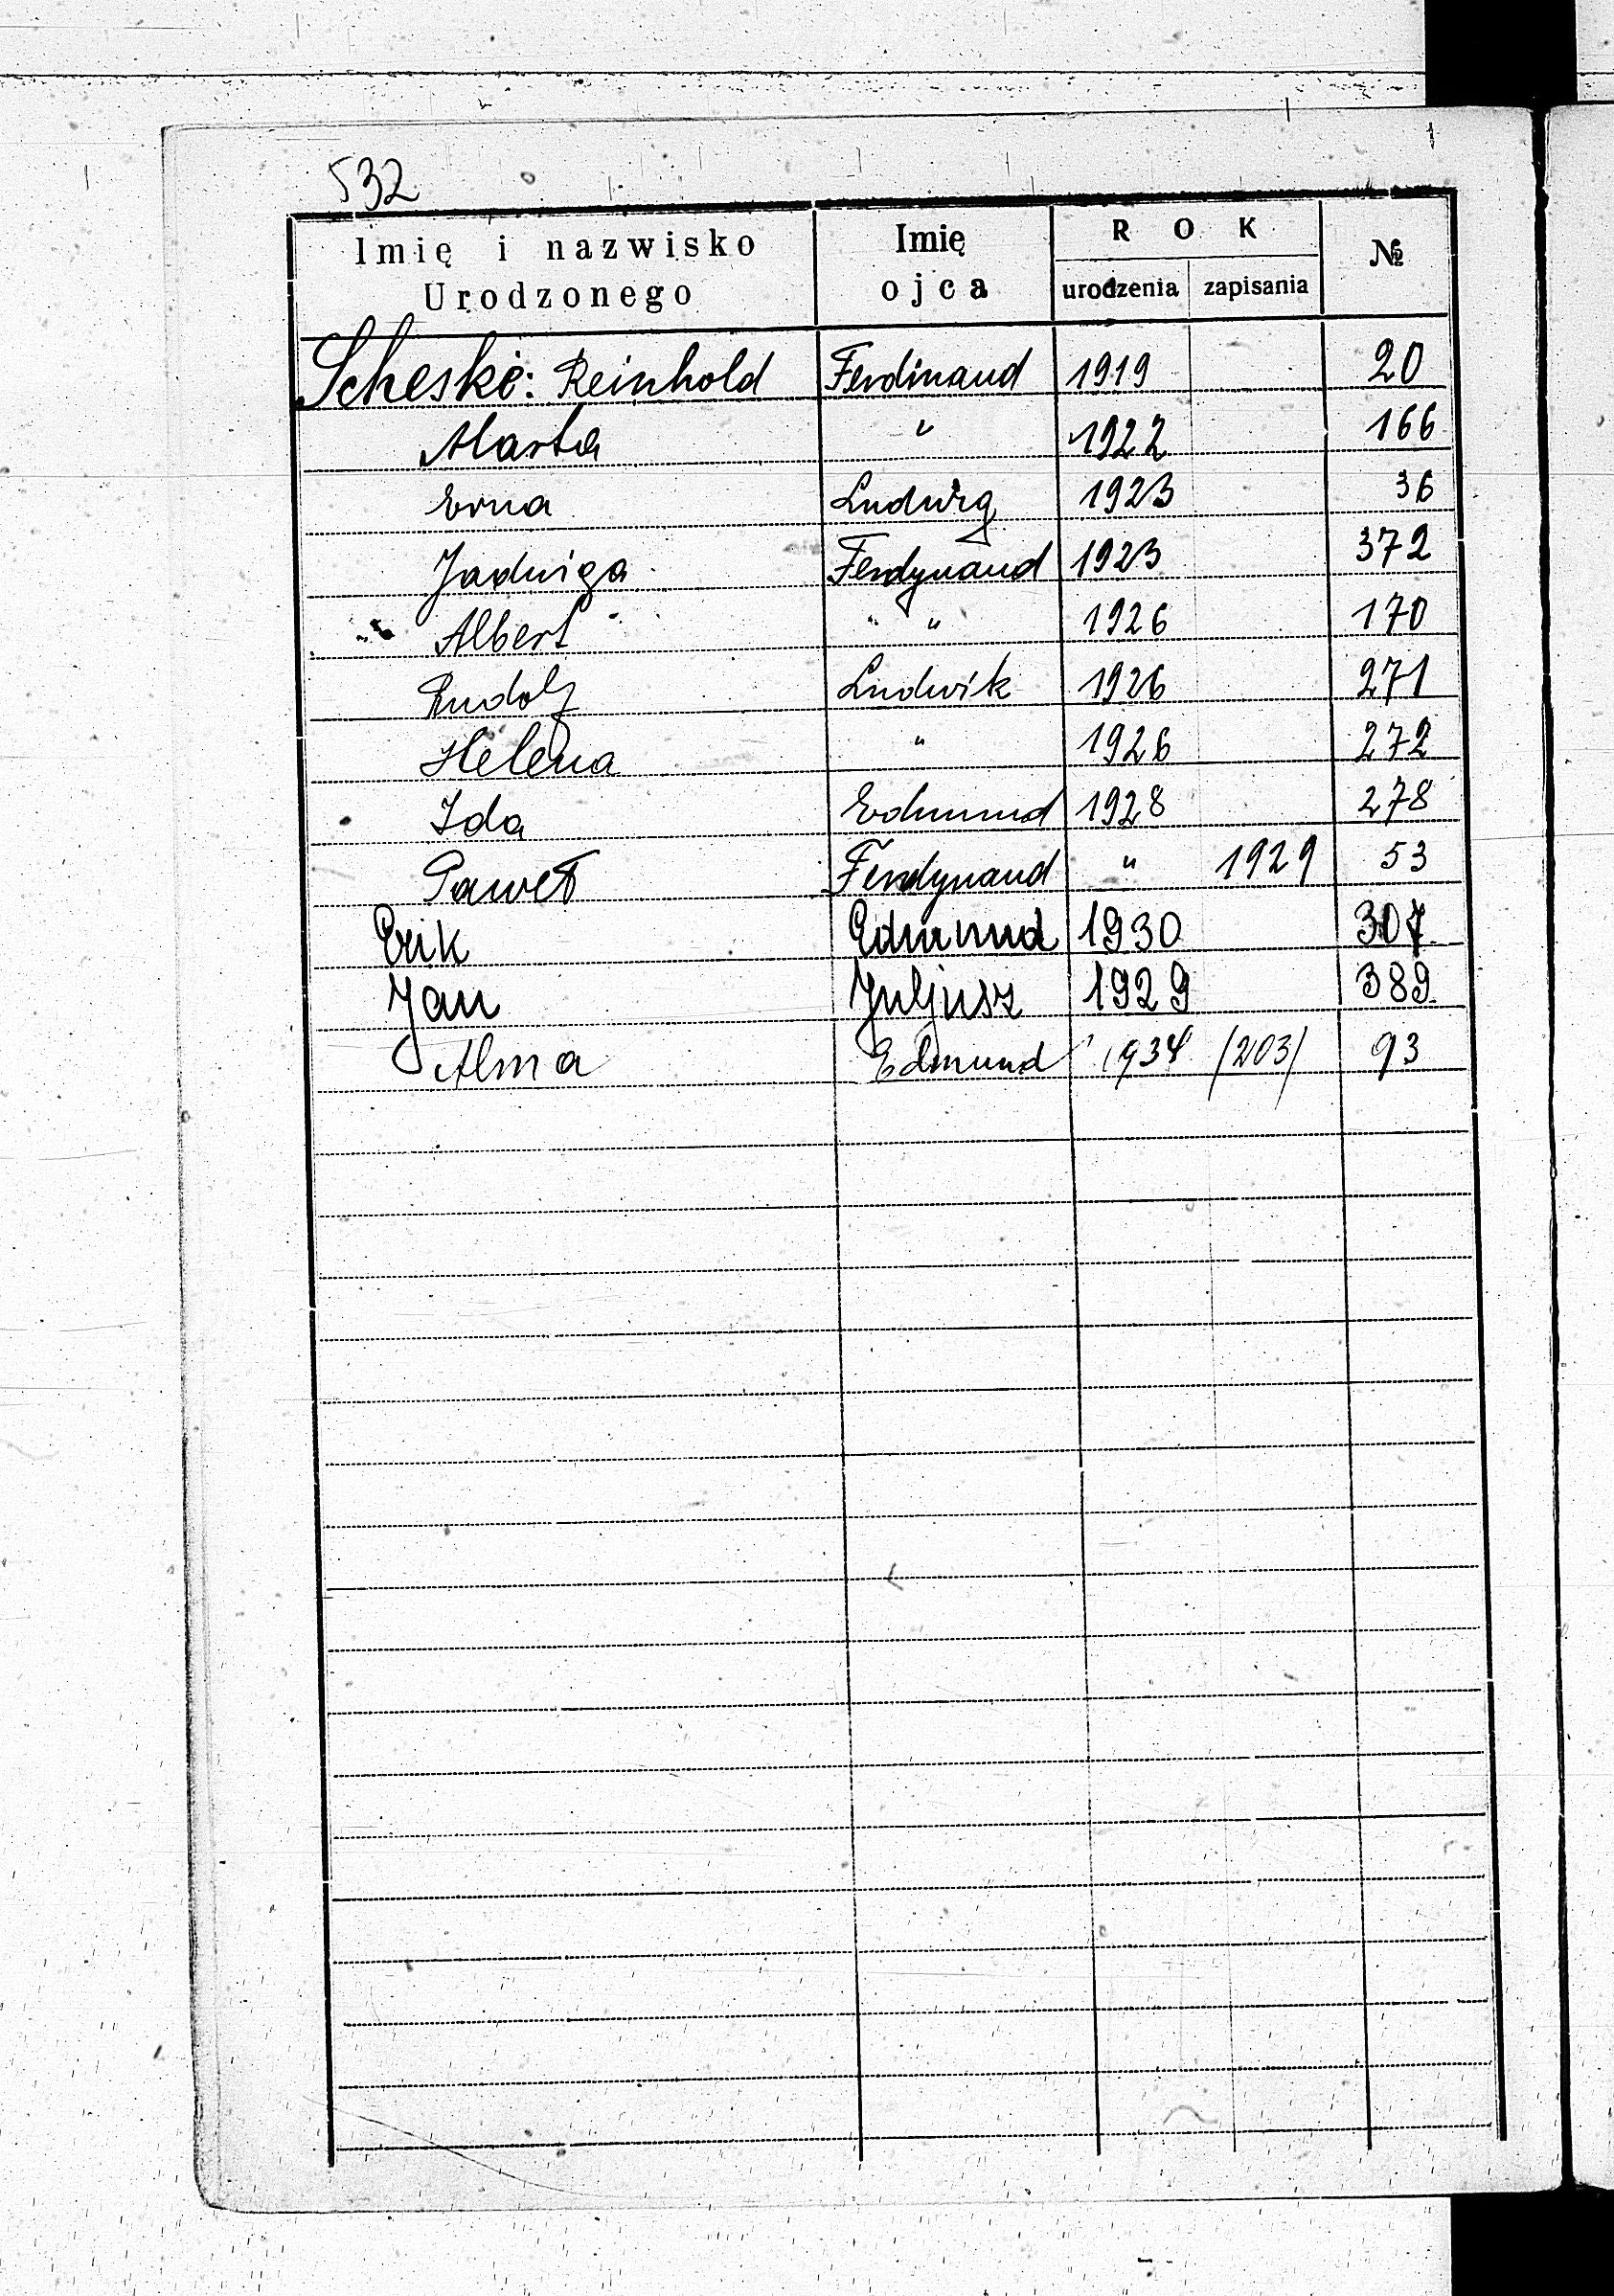 532
Imię i nazwisko Urodzonego | Imię ojca | ROK urodzenia | zapisania | №
Scheske: Reinhold Ferdinand 1919 20
Marta " 1922 166
Erna Ludwig 1923 36
Jadwiga Ferdynand 1923 372
Albert " " 1926 170
Rudolf Ludwik 1926 271
Helena " 1926 272
Ida Edmund 1928 278
Paweł Ferdynand " 1929 53
Erik Edmund 1930 307
Jan Juljusz 1929 389
Alma Edmund 1934 /203/ 93